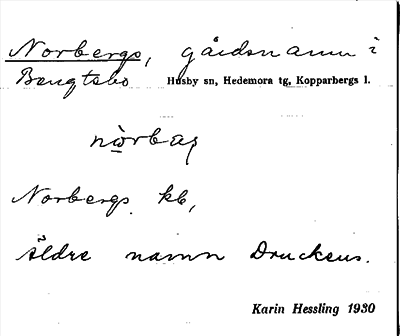 Norbergs, gårdsnamn i
Bengtsbo Husby sn, Hedemora tg, Kopparbergs l.
nòrbaş
Norbergs kb,
äldre namn Druckens.
Karin Hessling 1930